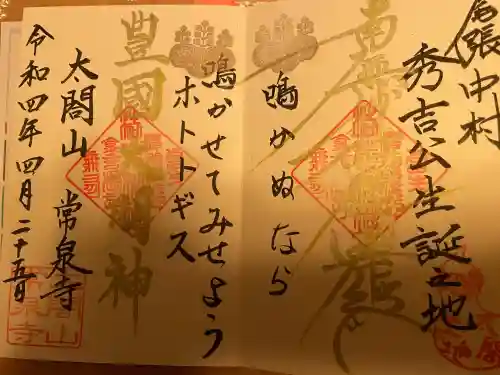 尾張中村
秀吉公生誕之地
南無妙法蓮華経
鳴かぬなら
鳴かせてみせよう
ホトトギス
豊國大明神
太閤山 常泉寺
令和四年四月二十五日